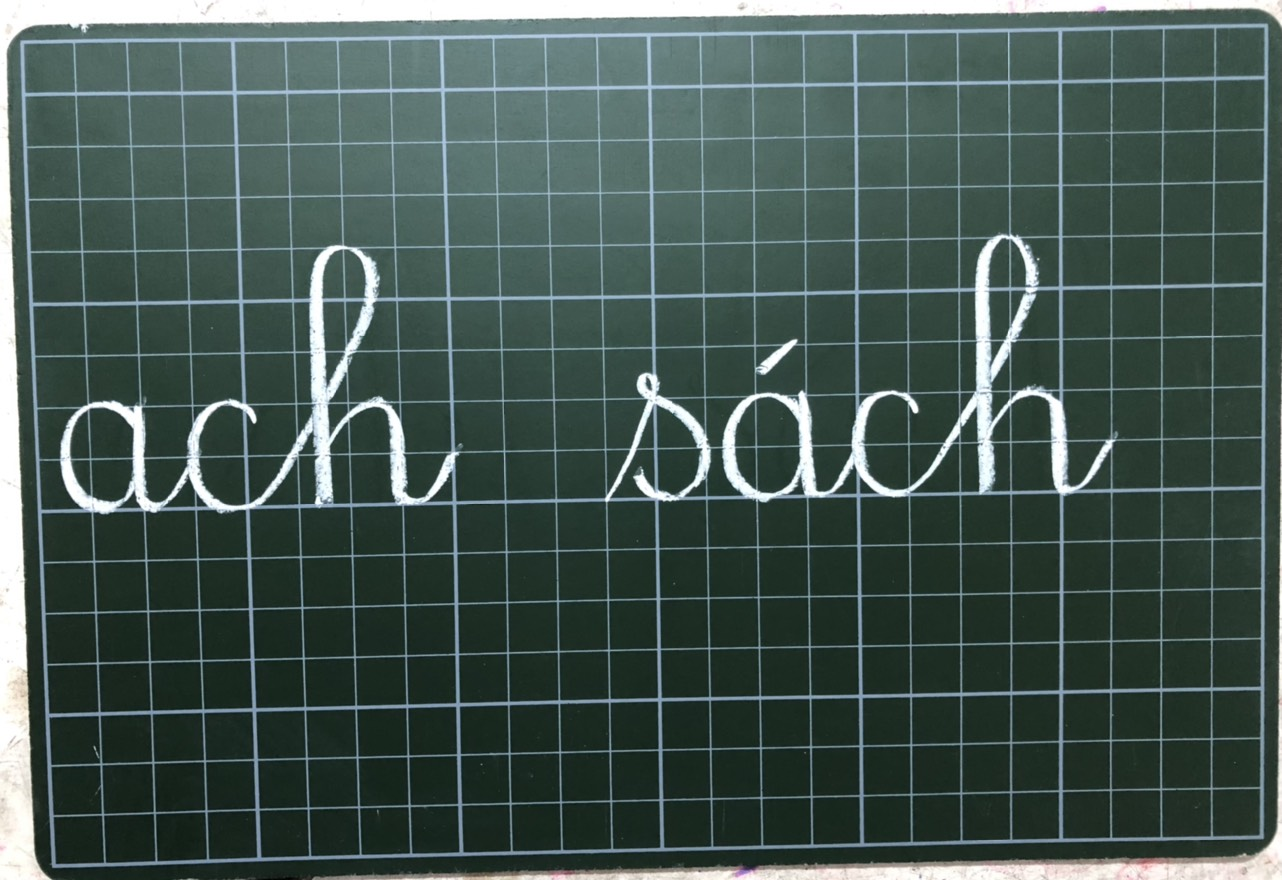 ach sách